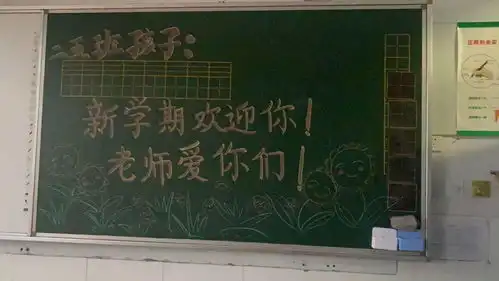 二五班孩子：
新学期欢迎你！
老师爱你们！